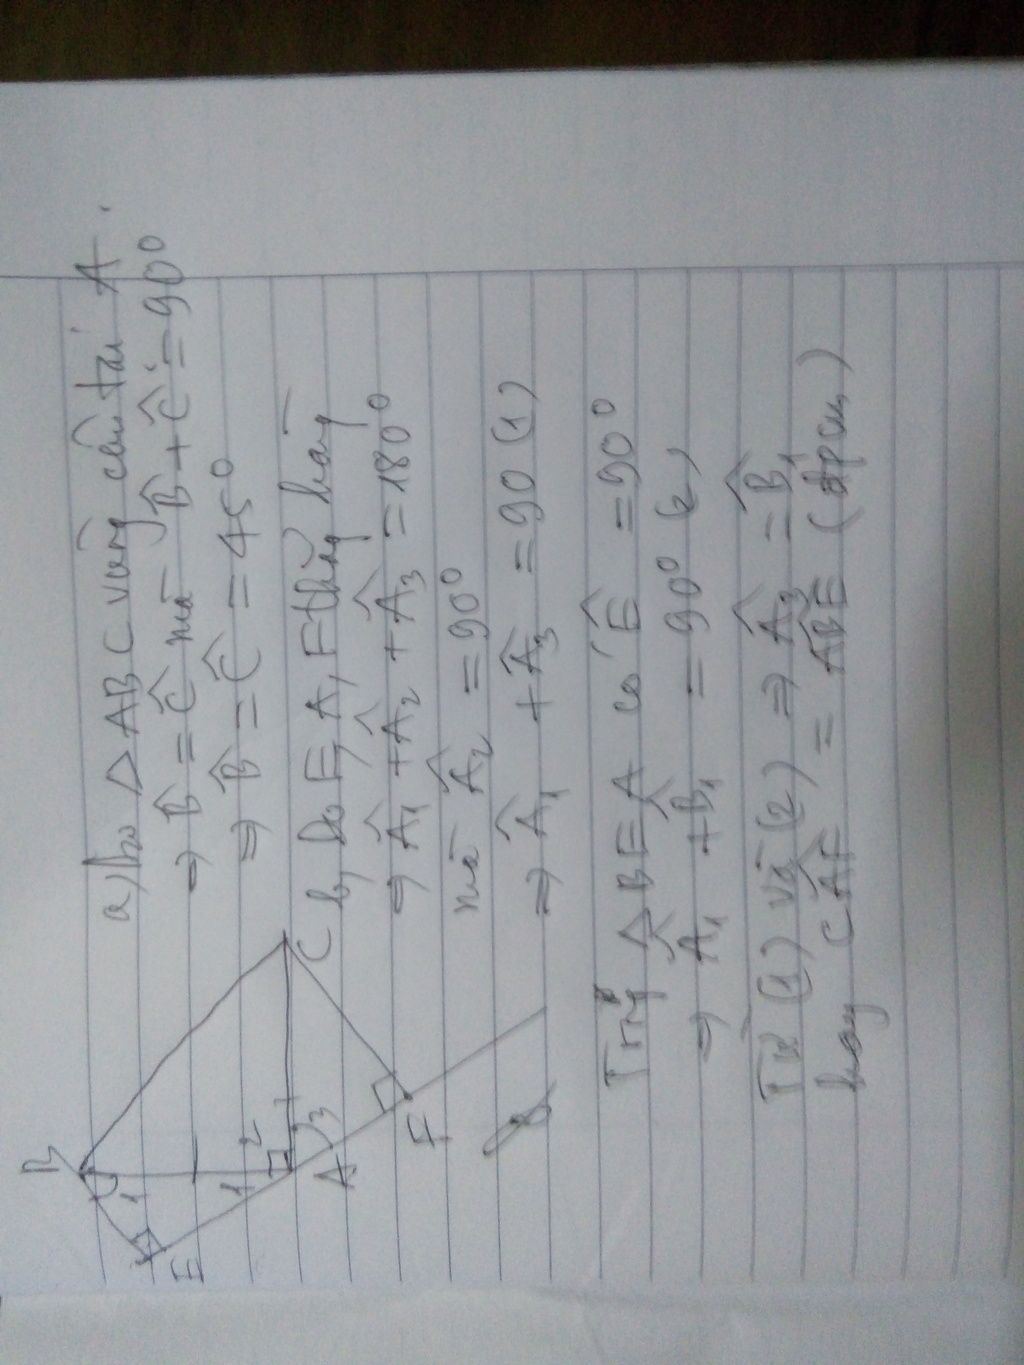 a, Do △ABC vuông cân tại A.
⇒ B̂ = Ĉ mà B̂ + Ĉ = 90⁰
⇒ B̂ = Ĉ = 45⁰
b, Do E, A, F thẳng hàng
⇒ Â₁ + Â₂ + Â₃ = 180⁰
mà Â₂ = 90⁰
⇒ Â₁ + Â₃ = 90 (1)
Trong △BEA có Ê = 90⁰
⇒ Â₁ + B̂₁ = 90⁰ (2)
Từ (1) và (2) ⇒ Â₃ = B̂₁
hay CÂF = AB̂E (đpcm)
B
1
E
1 2
A 3
C
F